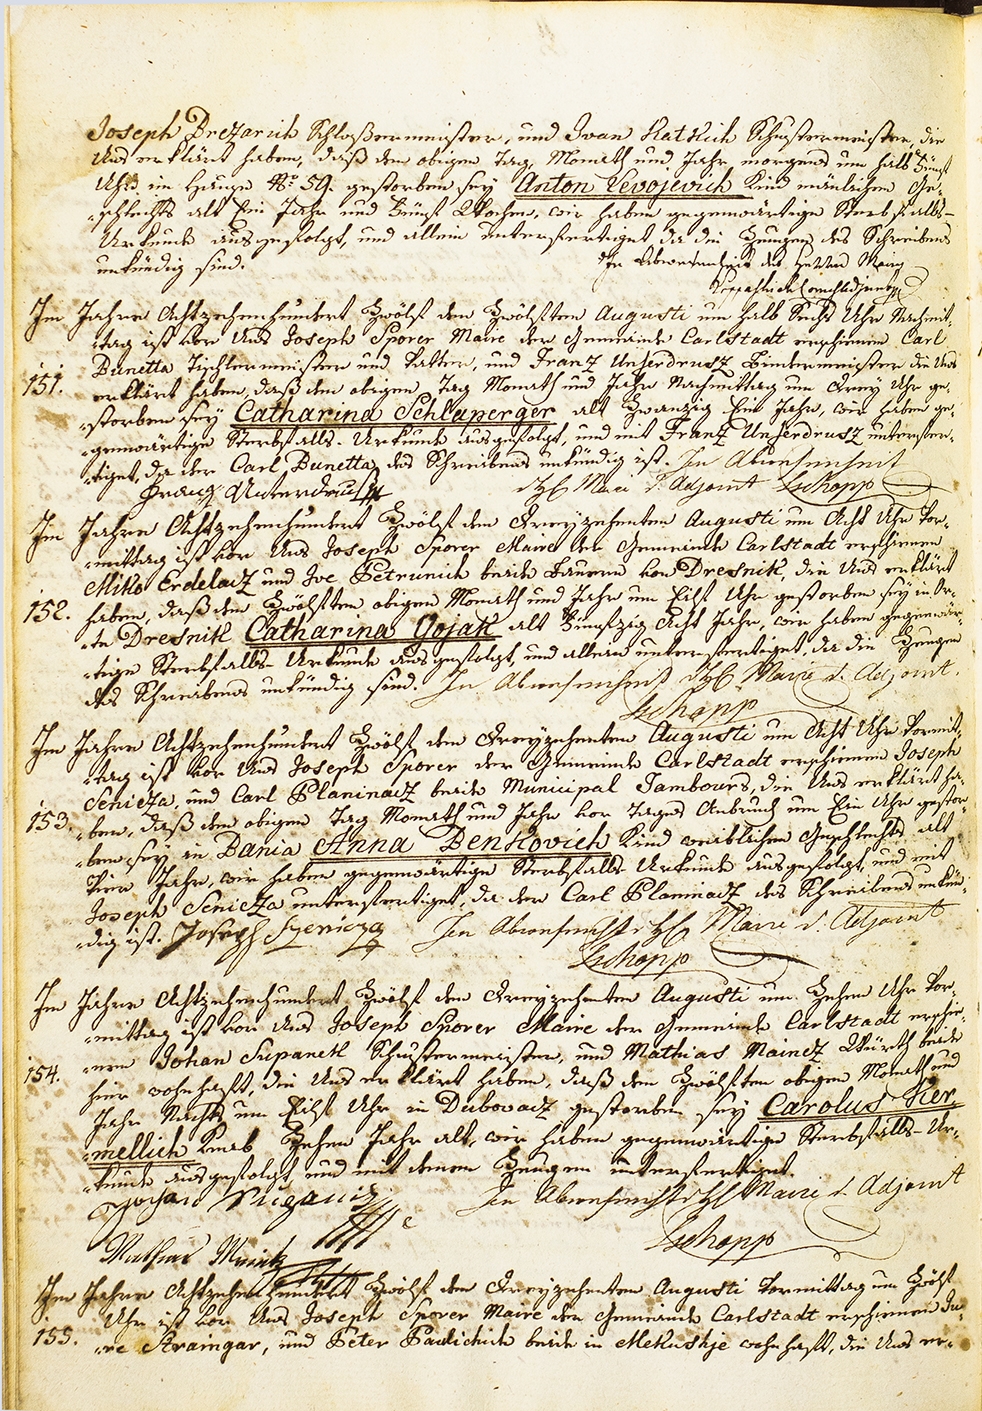 Joseph Drexarich Schloßermeister, und Ivan Katkich Schustermeister, die
Uns erklärt haben, daß den obigen Tag, Monath und Jahr morgens um halb Fünf
Uhr im Hause No. 59. gestorben sey Anton Vevojevich Kind mänlichen Ge-
-schlechts alt Ein Jahr und Fünf Wochen, wir haben gegenwärtige Sterbfalls-
Urkunde ausgefolgt, und allein unterfertiget da die Zeugen des Schreibens
unkündig sind.
In Abwesenheit des Herrn Maire
Im Jahre Achtzehenhundert Zwölf den Zwölften Augusti um halb Sechs Uhr Nachmit-
-tag ist vor Uns Joseph Sporer Maire der Gemeinde Carlstadt erschienen Carl
Bunetta Tischlermeister und Vatter, und Franz Unterdrusz Bindermeister die Uns
151. erklärt haben, daß den obigen Tag Monath und Jahr Nachmittag um Drey Uhr ge-
-storben sey Catharina Schlaperger alt Zwanzig Ein Jahr, wir haben ge-
-genwärtige Sterbfalls-Urkunde ausgefolgt, und mit Franz Unterdrusz unterfer-
-tiget, da der Carl Bunetta des Schreibens unkündig ist. In Abwesenheit
Franz Unterdrusz d. H. Maire d. Adjoint Tschopp
Im Jahre Achtzehenhundert Zwölf den Dreyzehenten Augusti um Acht Uhr Vor-
-mittag ist vor Uns Joseph Sporer Maire der Gemeinde Carlstadt erschienen
Miko Erdelacz und Ive Petrunich beide Bauern von Dresnik, die Uns erklärt
152. haben, daß den Zwölften obigen Monath und Jahr um Eilf Uhr gestorben sey in Or-
-te Dresnik Catharina Gojak alt Fünfzig Acht Jahr, wir haben gegenwär-
-tige Sterbfalls-Urkunde ausgefolgt, und allein unterfertiget, da die Zeugen
des Schreibens unkündig sind. In Abwesenheit d. H. Maire d. Adjoint.
Tschopp
Im Jahre Achtzehenhundert Zwölf den Dreyzehenten Augusti um Acht Uhr Vormit-
-tag ist vor Uns Joseph Sporer der Gemeinde Carlstadt erschienen Joseph
Senicza, und Carl Planinacz beide Municipal Tambours, die Uns erklärt ha-
153. -ben, daß den obigen Tag Monath und Jahr vor Tages Anbruch um Ein Uhr gestor-
-ben sey in Bania Anna Benkovich Kind weiblichen Geschlechts alt
Vier Jahr, wir haben gegenwärtige Sterbfalls Urkunde ausgefolgt, und mit
Joseph Senicza unterfertiget, da der Carl Planinacz des Schreibens unkün-
-dig ist. Joseph Szenicza In Abwesenheit d. H. Maire d. Adjoint
Tschopp
Im Jahre Achtzehenhundert Zwölf den Dreyzehenten Augusti um Zehen Uhr Vor-
-mittag ist vor Uns Joseph Sporer Maire der Gemeinde Carlstadt erschie-
154. -nen Johan Supanek Schustermeister, und Mathias Maincz Würth beide
hier wohnhaft, die Uns erklärt haben, daß den Zwölften obigen Monath und
Jahr Nachts um Eilf Uhr in Dubovacz gestorben sey Carolus Ker-
-mellich Knab Zehen Jahr alt, wir haben gegenwärtige Sterbfalls-Ur-
-kunde ausgefolgt, und mit denen Zeugen unterfertiget.
In Abwesenheit d. H. Maire d. Adjoint
Tschopp
Im Jahre Achtzehenhundert Zwölf den Dreyzehenten Augusti Vormittag um Zwölf
Uhr ist vor Uns Joseph Sporer Maire der Gemeinde Carlstadt erschienen Ju-
155. -re Straingar, und Peter Paulichich beide in Mekushje wohnhaft, die Uns er-